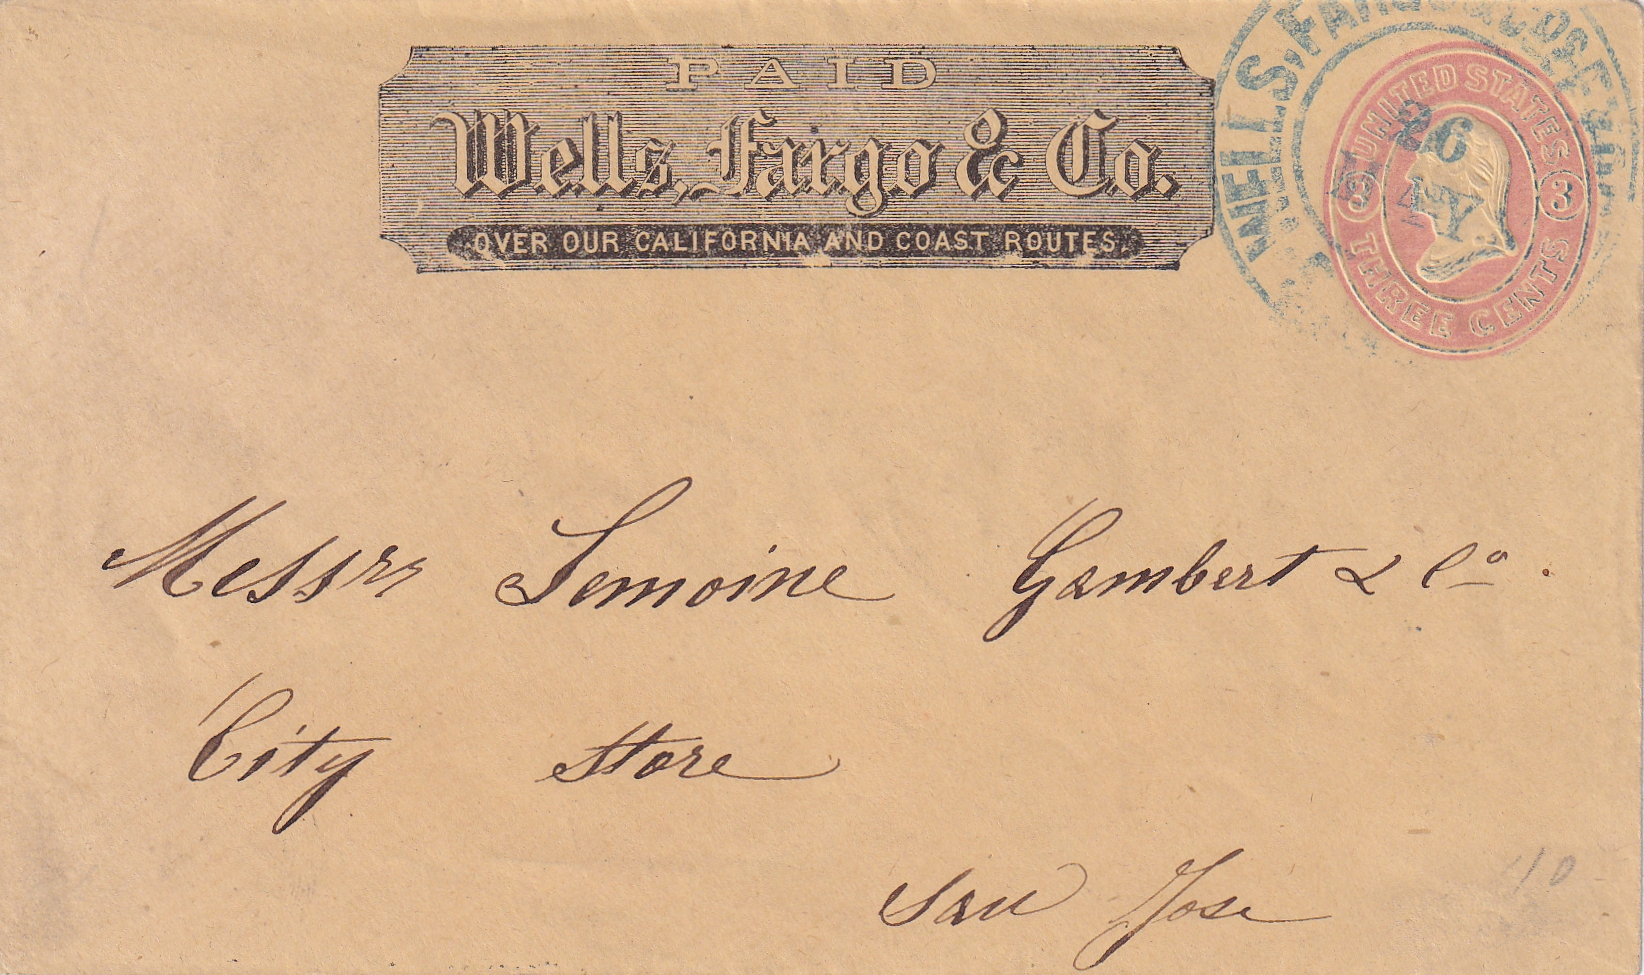 PAID
Wells, Fargo & Co.
OVER OUR CALIFORNIA AND COAST ROUTES.
WELLS, FARGO & CO
26
UNITED STATES
3 3
THREE CENTS
Messrs Lemoine Gambert & Co.
City Store
San Jose
10